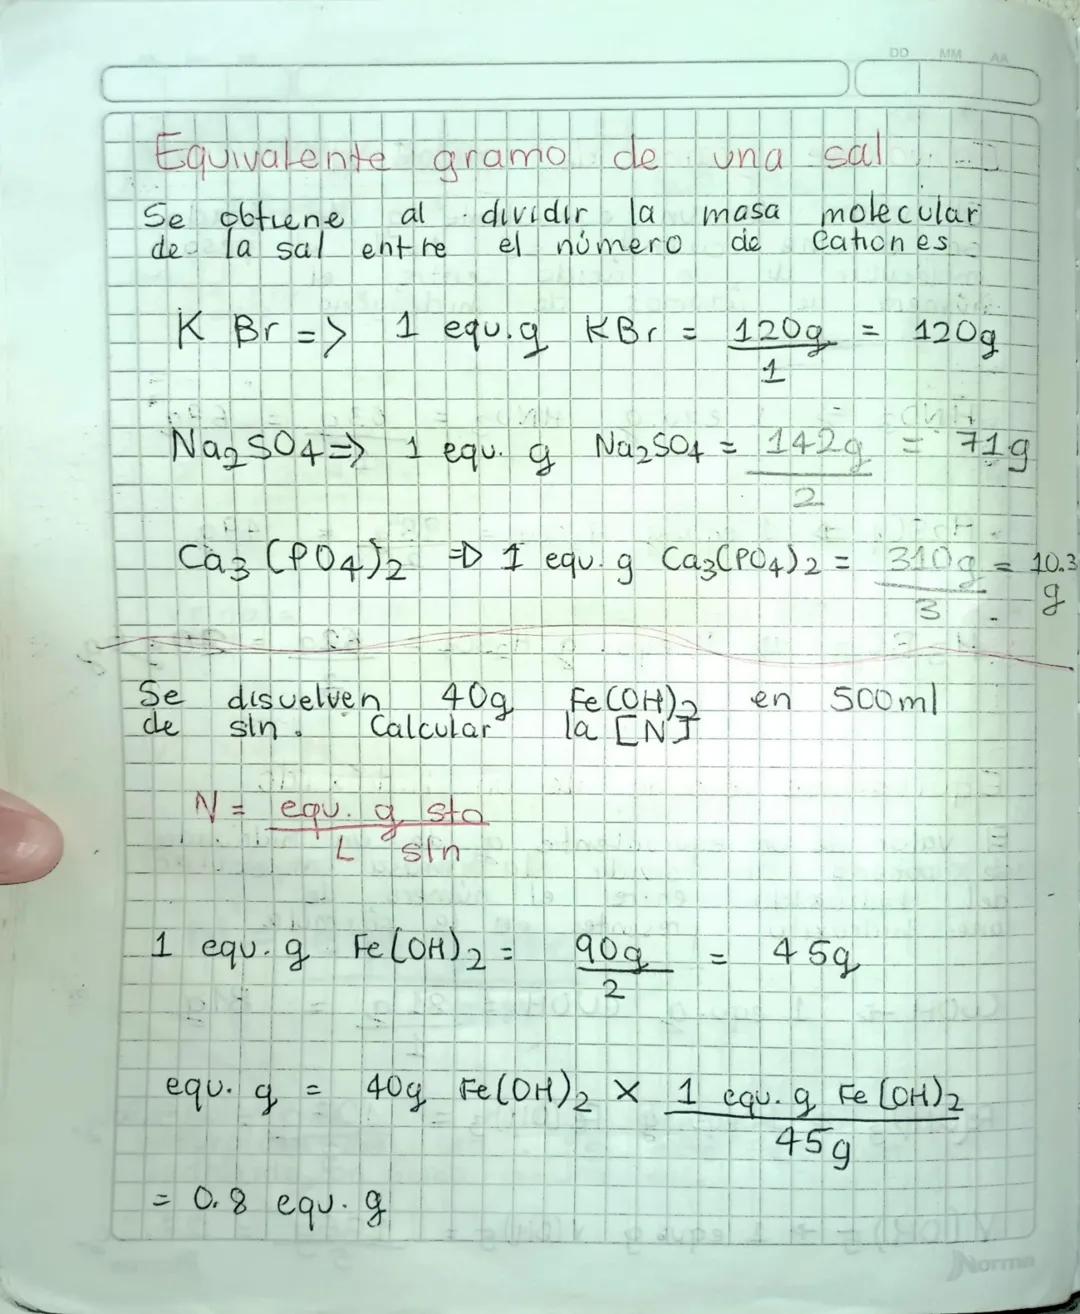 DD MM AA
Equivalente gramo de una sal
Se obtiene al dividir la masa molecular
de la sal entre el número de cationes
K Br => 1 equ.g KBr = 120g/1 = 120g
Na2SO4 => 1 equ. g Na2SO4 = 142g/2 = 71g
Ca3(PO4)2 => 1 equ. g Ca3(PO4)2 = 310g/3 = 10.3 g
Se disuelven 40g Fe(OH)2 en 500ml
de sln. Calcular la [N]
N = equ. g sto / L sln
1 equ. g Fe(OH)2 = 90g/2 = 45g
equ. g = 40g Fe(OH)2 X 1 equ. g Fe(OH)2 / 45g
= 0.8 equ. g
Norma